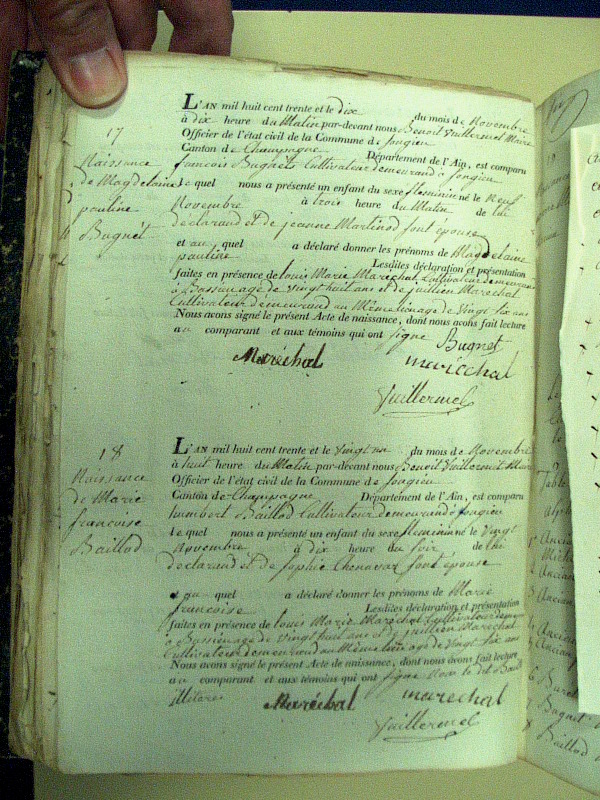 17
Naissance
de Magdelaine
pauline
Bugnet
L'AN mil huit cent trente et le dix du mois de Novembre
à dix heure du Matin par-devant nous Benoit Vuillermet Maire
Officier de l'état civil de la Commune de Songieu
Canton de Champagne Département de l'Ain, est comparu
francois Bugnet Cultivateur demeurand à Songieu
le quel nous a présenté un enfant du sexe fleminin né le Neuf
Novembre à trois heure du Matin de lui
déclarand et de jeanne Martinod sont épouse
et au quel a déclaré donner les prénoms de Magdelaine
pauline Lesdites déclaration et présentation
faites en présence de louis Marie Maréchal Cultivateur demeurand
à Bassieu age de Vingt huit ans et de jullien Marechal
Cultivateur demeurand au Même lieu age de Vingt six ans
Nous avons signé le présent Acte de naissance, dont nous avons fait lecture
au comparant et aux témoins qui ont signe Bugnet
Maréchal maréchal
Vuillermet
18
Naissance
de Marie
francoise
Baillod
L'AN mil huit cent trente et le Vingt un du mois de Novembre
à huit heure du Matin par-devant nous Benoit Vuillermet Maire
Officier de l'état civil de la Commune de Songieu
Canton de Champagne Département de l'Ain, est comparu
humbert Baillod Cultivateur demeurand à Songieu
le quel nous a présenté un enfant du sexe fleminin né le Vingt
Novembre à dix heure du soir de lui
déclarand et de Sophie Chenavaz sont épouse
et au quel a déclaré donner les prénoms de Marie
francoise Lesdites déclaration et présentation
faites en présence de louis Marie Maréchal Cultivateur
à Bassieu age de Vingt huit ans et de jullien Maréchal
Cultivateur demeurand au Même lieu age de Vingt six ans
Nous avons signé le présent Acte de naissance, dont nous avons fait lecture
au comparant et aux témoins qui ont signe Non le dit Baillod
illitere Maréchal marechal
Vuillermet